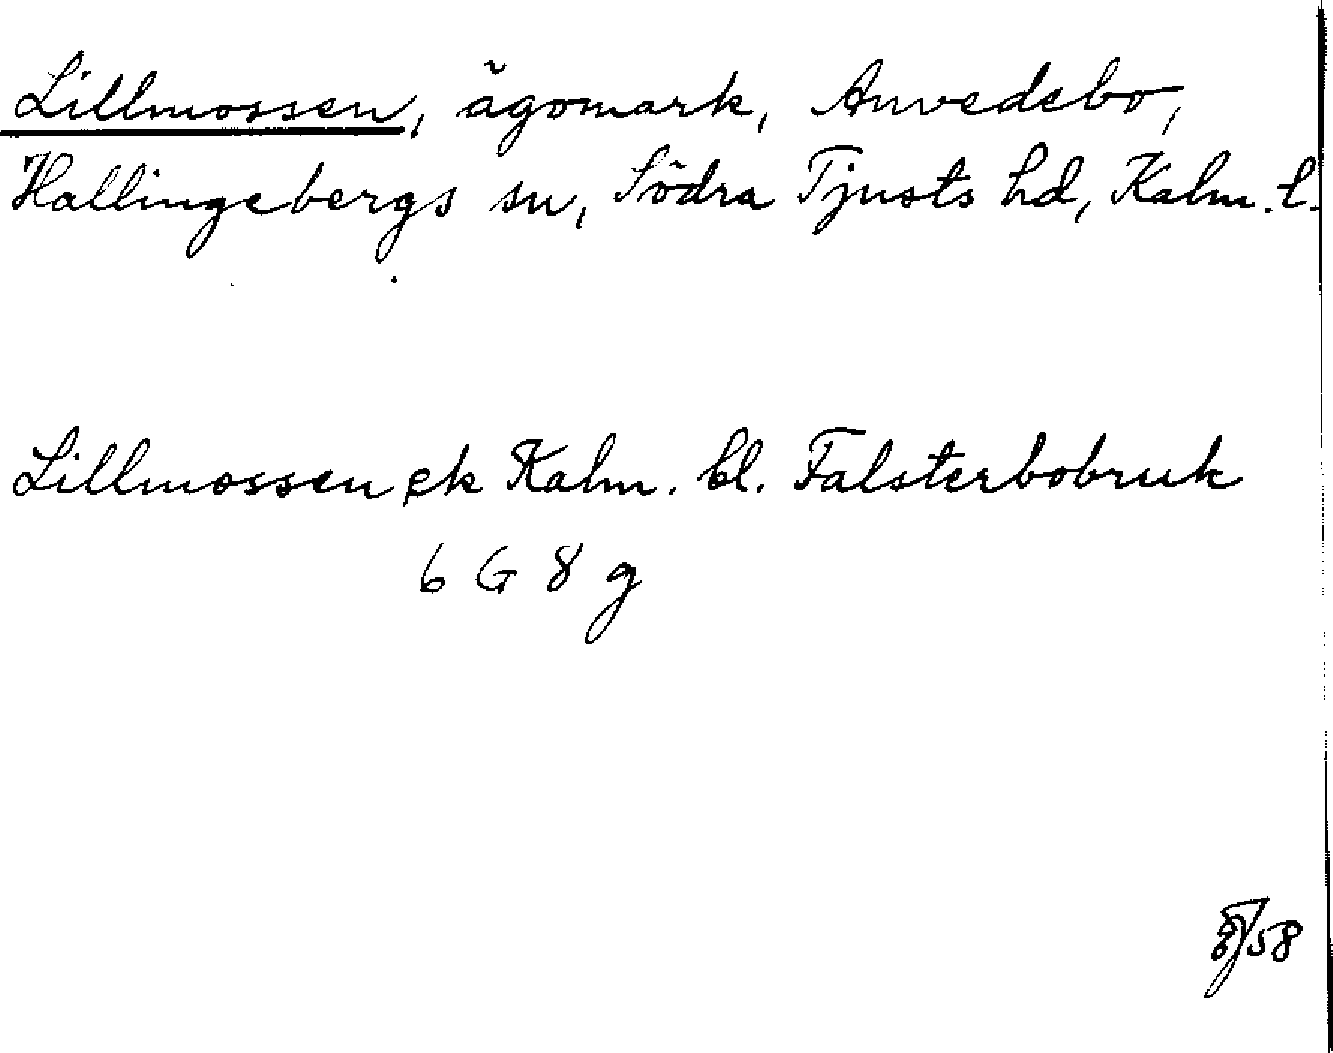 Lillmossen, ägomark, Anvedebo,
Hallingebergs sn, Södra Tjusts hd, Kalm. l.
Lillmossen ek Kalm. bl. Falsterbobruk
6 G 8 g
58